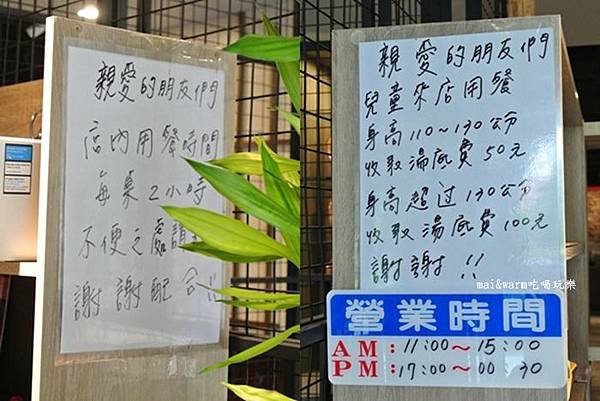 親愛的朋友們
店內用餐時間
每桌2小時
不便之處請
謝謝配合!!
親愛的朋友們
兒童來店用餐
身高110~130公分
收取湯底費50元
身高超过130公分
收取湯底費100元
謝謝!!
mai&warm吃喝玩樂
營業時間
AM:11:00~15:00
PM:17:00~00 30